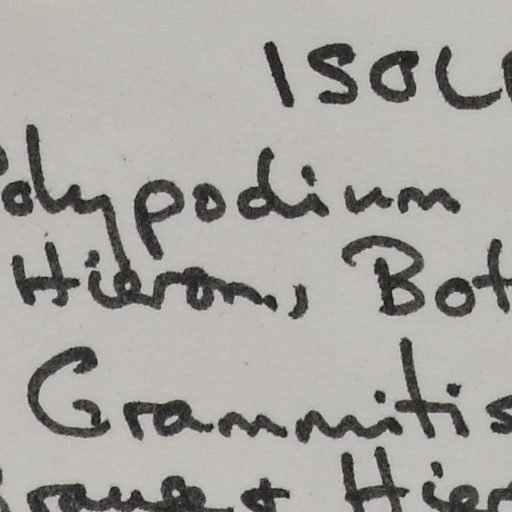 ISOL
Polypodium
Hieron., Bot
Grammitis
Brause & Hier